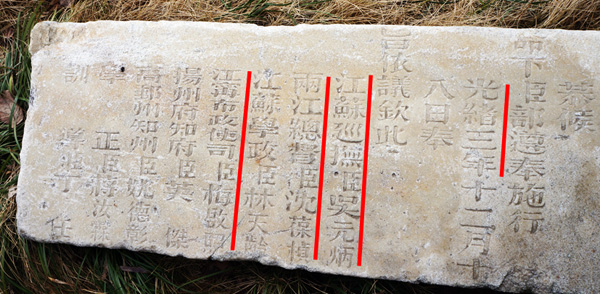 恭候
命下臣部遵奉施行
光緒三年十二月十
八日奉
旨依議欽此
江蘇巡撫臣吳元炳
兩江總督臣沈葆楨
江蘇學政臣林天齡
江甯布政使司臣梅啟照
揚州府知府臣英傑
高郵州知州臣姚德彰
學正臣蔣汝
訓任